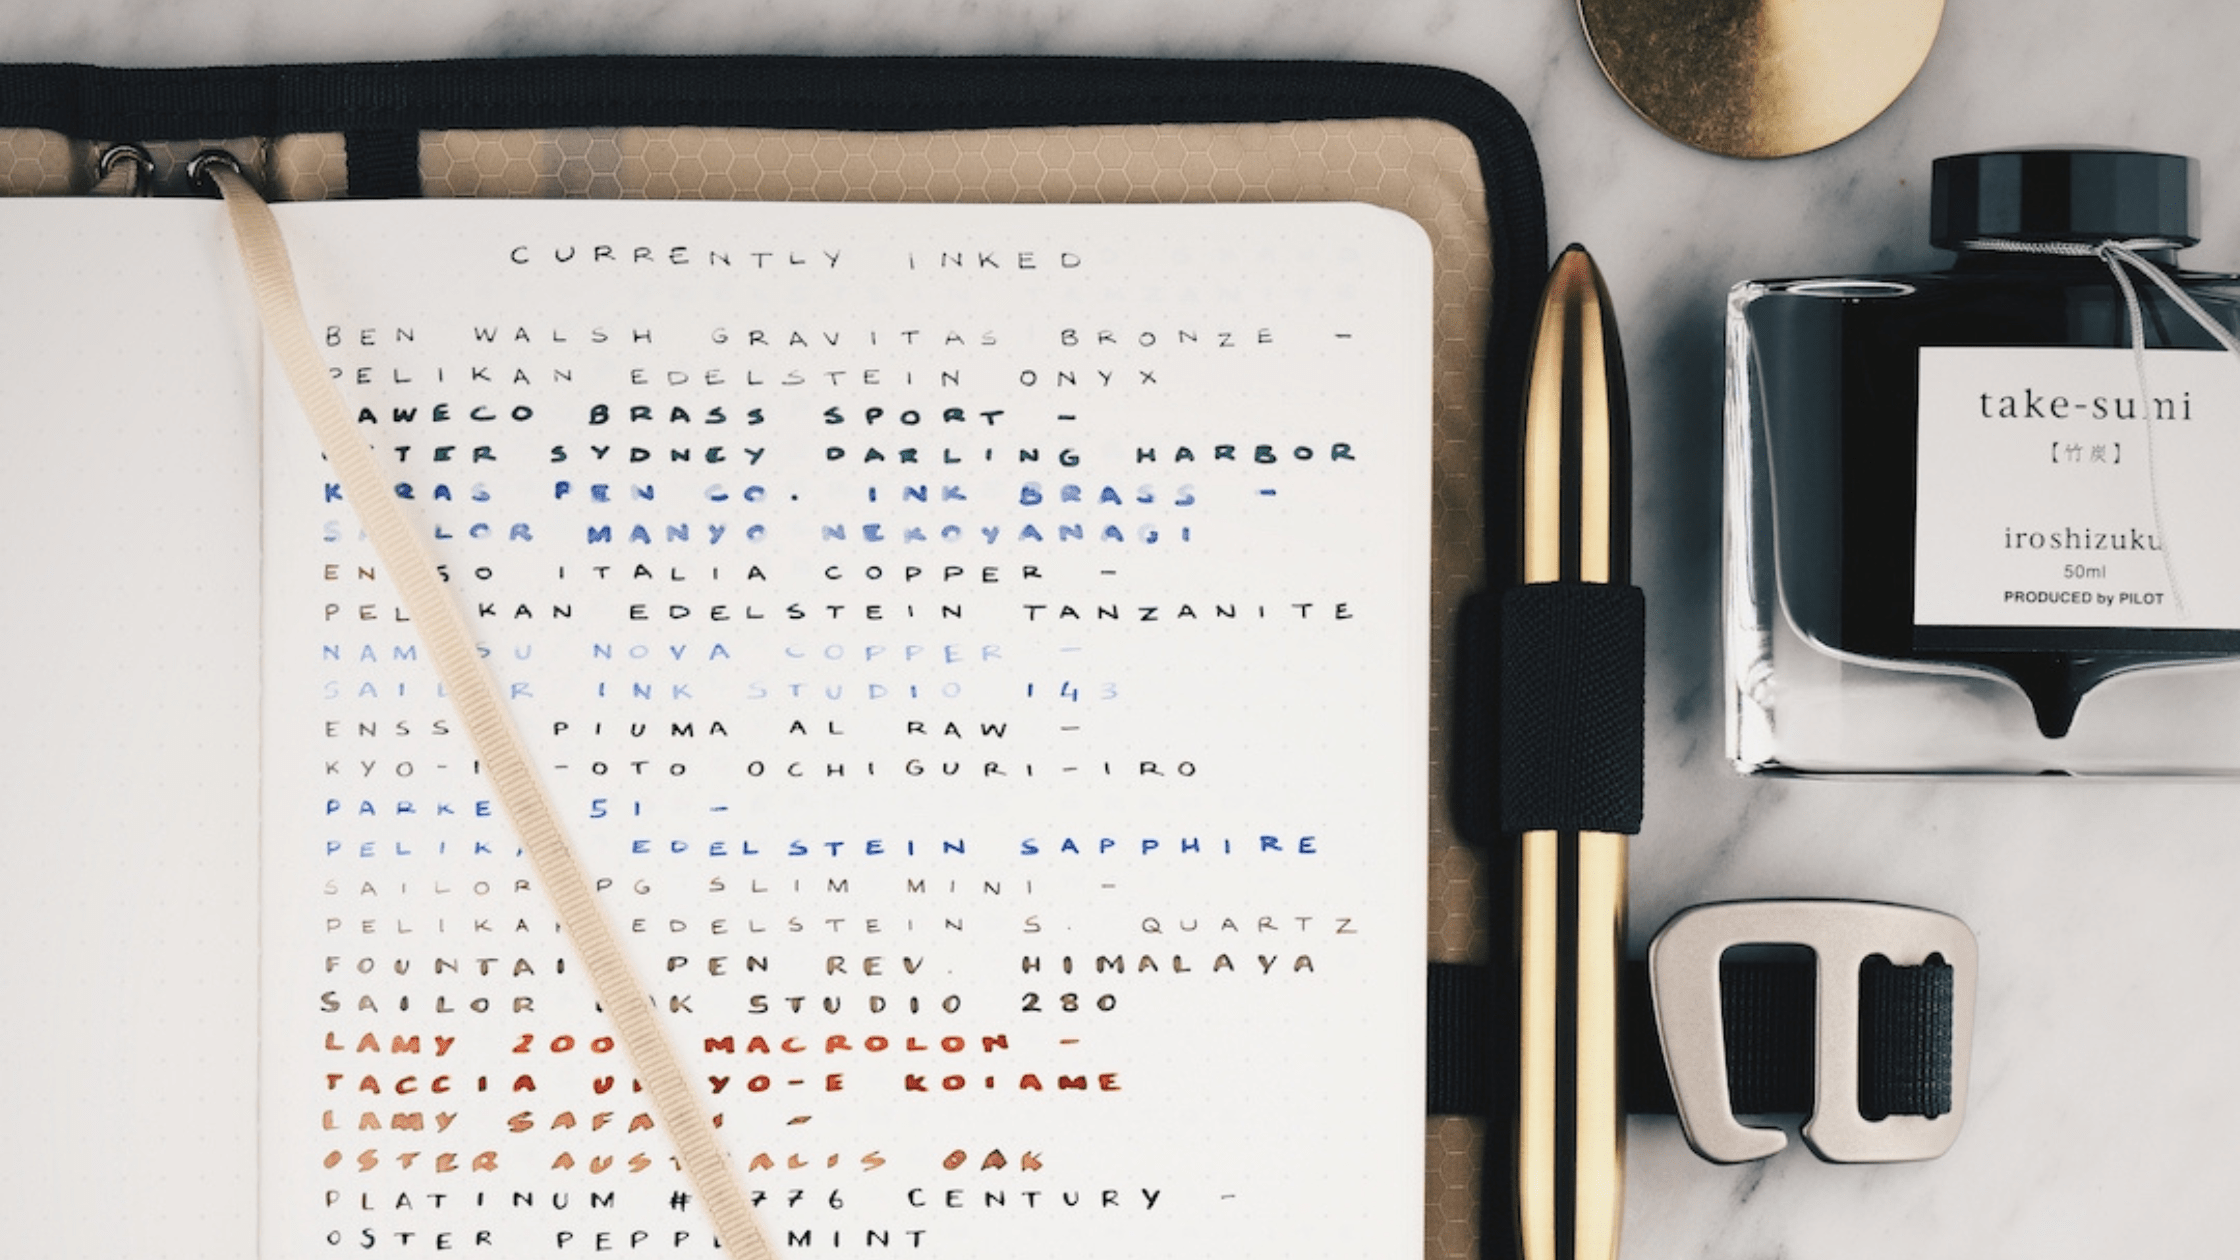 CURRENTLY INKED
BEN WALSH GRAVITAS BRONZE -
PELIKAN EDELSTEIN ONYX
BRASS SPORT -
SYDNEY DARLING HARBOR
PEN CO. INK BRASS -
SAILOR MANYO NEKOYANAGI
ITALIA COPPER -
PELIKAN EDELSTEIN TANZANITE
NOVA COPPER -
SAILOR INK STUDIO 143
PIUMA AL RAW -
OCHIGURI-IRO
PARKER 51 -
PELIKAN EDELSTEIN SAPPHIRE
SAILOR PG SLIM MINI -
PELIKAN EDELSTEIN S. QUARTZ
FOUNTAIN PEN REV. HIMALAYA
SAILOR INK STUDIO 280
LAMY 2000 MACROLON -
TACCIA UKIYO-E KOIAME
LAMY SAFARI -
OSTER AUSTRALIS OAK
PLATINUM CENTURY -
OSTER PEPPERMINT
take-sumi
【竹炭】
iroshizuku
50ml
PRODUCED by PILOT